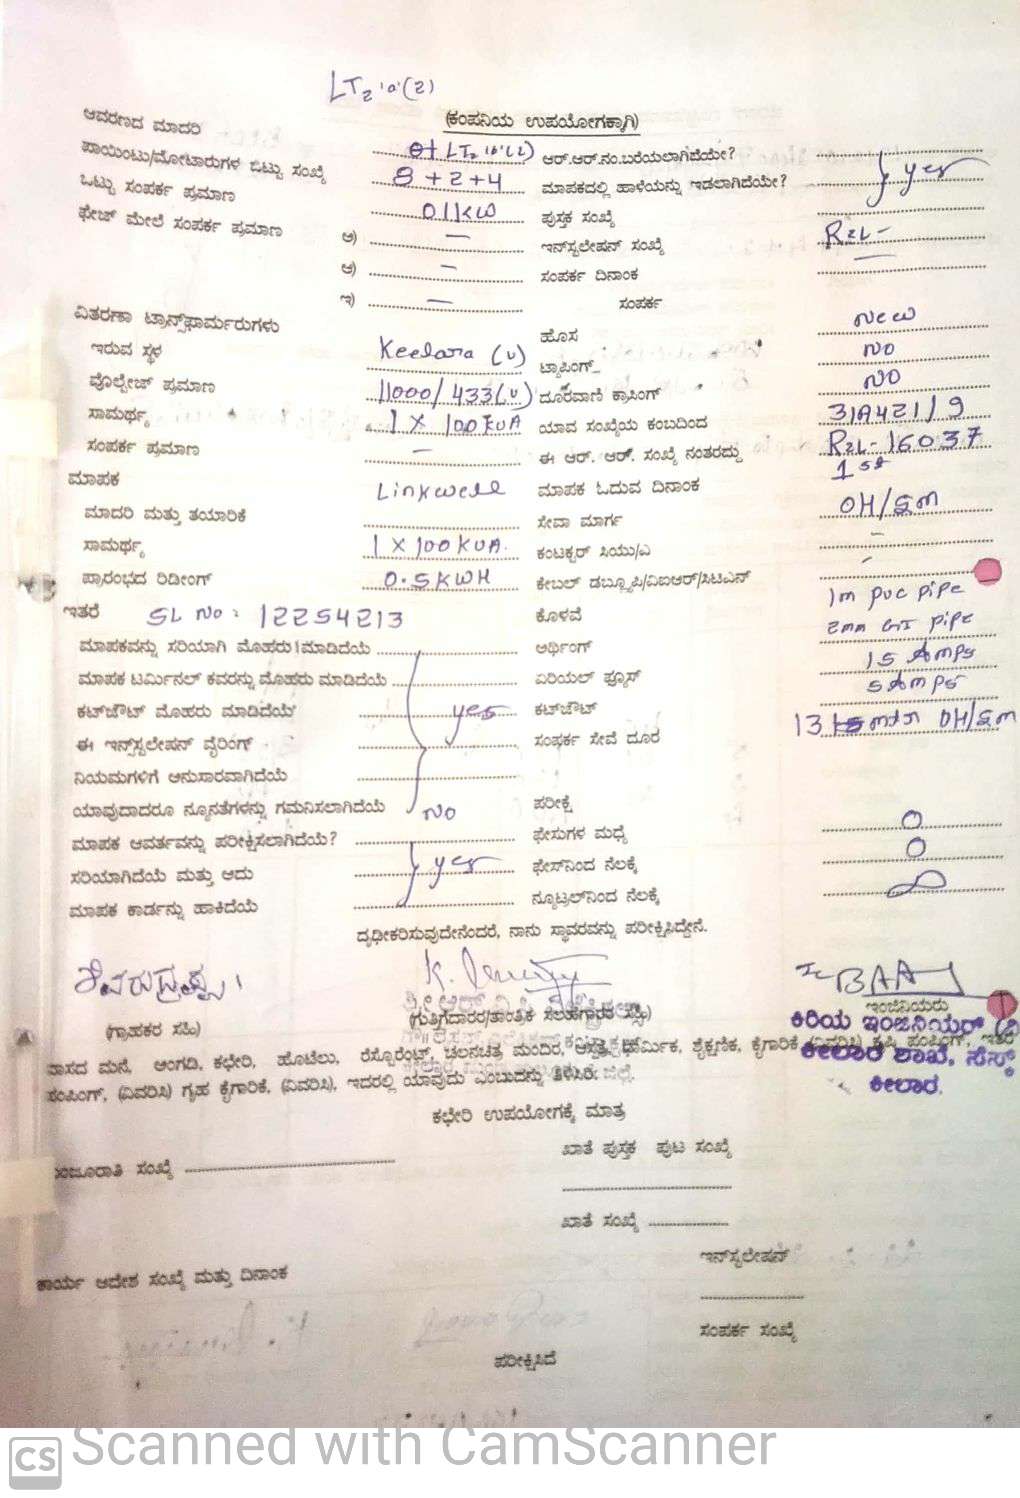 LT2 'a'(2)
(ಕಂಪನಿಯ ಉಪಯೋಗಕ್ಕಾಗಿ)
ಆವರಣದ ಮಾದರಿ LT2 'a'(2) ಆರ್.ಆರ್.ನಂ.ಬರೆಯಲಾಗಿದೆಯೇ?
ಪಾಯಿಂಟು/ಮೋಟಾರುಗಳ ಒಟ್ಟು ಸಂಖ್ಯೆ 8+2+4 ಮಾಪಕದಲ್ಲಿ ಹಾಳೆಯನ್ನು ಇಡಲಾಗಿದೆಯೇ? yes
ಒಟ್ಟು ಸಂಪರ್ಕ ಪ್ರಮಾಣ 01KW ಪುಸ್ತಕ ಸಂಖ್ಯೆ
ಫೇಜ್ ಮೇಲೆ ಸಂಪರ್ಕ ಪ್ರಮಾಣ ಅ) — ಇನ್‌ಸ್ಟಲೇಷನ್ ಸಂಖ್ಯೆ RzL-
ಆ) — ಸಂಪರ್ಕ ದಿನಾಂಕ
ಇ) — ಸಂಪರ್ಕ
ವಿತರಣಾ ಟ್ರಾನ್ಸ್‌ಫಾರ್ಮರುಗಳು ಹೊಸ New
ಇರುವ ಸ್ಥಳ Keelara (v) ಟ್ಯಾಪಿಂಗ್ No
ವೊಲ್ಟೇಜ್ ಪ್ರಮಾಣ 11000/433(v) ದೂರವಾಣಿ ಕ್ರಾಸಿಂಗ್ No
ಸಾಮರ್ಥ್ಯ 1 X 100KVA ಯಾವ ಸಂಖ್ಯೆಯ ಕಂಬದಿಂದ 31A421/9
ಸಂಪರ್ಕ ಪ್ರಮಾಣ — ಈ ಆರ್. ಆರ್. ಸಂಖ್ಯೆ ನಂತರದ್ದು RzL-16037
ಮಾಪಕ Linkwell ಮಾಪಕ ಓದುವ ದಿನಾಂಕ 1st
ಮಾದರಿ ಮತ್ತು ತಯಾರಿಕೆ ಸೇವಾ ಮಾರ್ಗ OH/Sm
ಸಾಮರ್ಥ್ಯ 1 X 100KVA. ಕಂಟಕ್ಟರ್ ಸಿಯು/ಎ -
ಪ್ರಾರಂಭದ ರಿಡೀಂಗ್ 0.5KWH ಕೇಬಲ್ ಡಬ್ಲ್ಯೂಪಿ/ವಿಐಆರ್/ಸಿಟಿಎನ್ -
ಇತರೆ SL No: 12254213 ಕೊಳವೆ 1m pvc pipe
ಮಾಪಕವನ್ನು ಸರಿಯಾಗಿ ಮೊಹರು ಮಾಡಿದೆಯೆ ಅರ್ಥಿಂಗ್ 2mm GI pipe
ಮಾಪಕ ಟರ್ಮಿನಲ್ ಕವರನ್ನು ಮೊಹರು ಮಾಡಿದೆಯೆ ಏರಿಯಲ್ ಫ್ಯೂಸ್ 15 Amps
ಕಟ್‌ಔಟ್ ಮೊಹರು ಮಾಡಿದೆಯೆ yes ಕಟ್‌ಔಟ್ 5 Amps
ಈ ಇನ್ಸ್‌ಟಲೇಷನ್ ವೈರಿಂಗ್ ಸಂಪರ್ಕ ಸೇವೆ ದೂರ 13 OH/Sm
ನಿಯಮಗಳಿಗೆ ಅನುಸಾರವಾಗಿದೆಯೆ
ಯಾವುದಾದರೂ ನ್ಯೂನತೆಗಳನ್ನು ಗಮನಿಸಲಾಗಿದೆಯೆ No ಪರೀಕ್ಷೆ
ಮಾಪಕ ಆವರ್ತವನ್ನು ಪರೀಕ್ಷಿಸಲಾಗಿದೆಯೆ? ಫೇಸುಗಳ ಮಧ್ಯೆ 0
ಸರಿಯಾಗಿದೆಯೆ ಮತ್ತು ಅದು yes ಫೇಸ್‌ನಿಂದ ನೆಲಕ್ಕೆ 0
ಮಾಪಕ ಕಾರ್ಡನ್ನು ಹಾಕಿದೆಯೆ ನ್ಯೂಟ್ರಲ್‌ನಿಂದ ನೆಲಕ್ಕೆ
ದೃಢೀಕರಿಸುವುದೇನೆಂದರೆ, ನಾನು ಸ್ಥಾವರವನ್ನು ಪರೀಕ್ಷಿಸಿದ್ದೇನೆ.
(ಗ್ರಾಹಕರ ಸಹಿ) (ಗುತ್ತಿಗೆದಾರರ/ತಾಂತ್ರಿಕ ಸಲಹೆಗಾರರ ಸಹಿ) ಇಂಜಿನಿಯರು
ಕಿರಿಯ ಇಂಜಿನಿಯರ್ (ವಿ)
ಕೀಲಾರ ಶಾಖೆ, ಸೆಸ್ಕ್
ಕೀಲಾರ.
ವಾಸದ ಮನೆ, ಅಂಗಡಿ, ಕಛೇರಿ, ಹೊಟೆಲು, ರೆಸ್ಟೊರೆಂಟ್, ಚಲನಚಿತ್ರ ಮಂದಿರ, ಆಸ್ಪತ್ರೆ, ಧಾರ್ಮಿಕ, ಶೈಕ್ಷಣಿಕ, ಕೈಗಾರಿಕೆ (ವಿವರಿಸಿ) ಕೃಷಿ ಪಂಪಿಂಗ್, ಇತರೆ
ಪಂಪಿಂಗ್, (ವಿವರಿಸಿ) ಗೃಹ ಕೈಗಾರಿಕೆ, (ವಿವರಿಸಿ), ಇದರಲ್ಲಿ ಯಾವುದು ಎಂಬುದನ್ನು ತಿಳಿಸಿರಿ.
ಕಛೇರಿ ಉಪಯೋಗಕ್ಕೆ ಮಾತ್ರ
ಮಂಜೂರಾತಿ ಸಂಖ್ಯೆ ಖಾತೆ ಪುಸ್ತಕ ಪುಟ ಸಂಖ್ಯೆ
ಖಾತೆ ಸಂಖ್ಯೆ
ಕಾರ್ಯ ಆದೇಶ ಸಂಖ್ಯೆ ಮತ್ತು ದಿನಾಂಕ ಇನ್‌ಸ್ಟಲೇಷನ್
ಸಂಪರ್ಕ ಸಂಖ್ಯೆ
ಪರೀಕ್ಷಿಸಿದೆ
CS Scanned with CamScanner